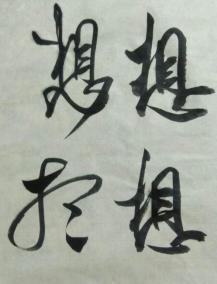 想想
想想